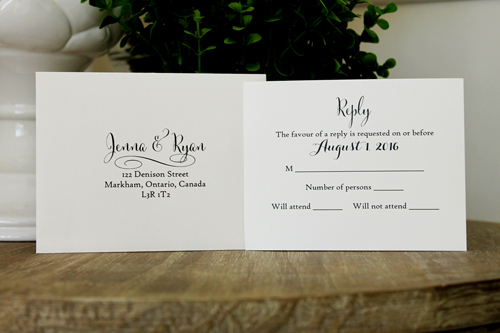 Jenna & Ryan
122 Denison Street
Markham, Ontario, Canada
L3R 1T2
Reply
The favour of a reply is requested on or before
August 1 2016
M
Number of persons
Will attend Will not attend